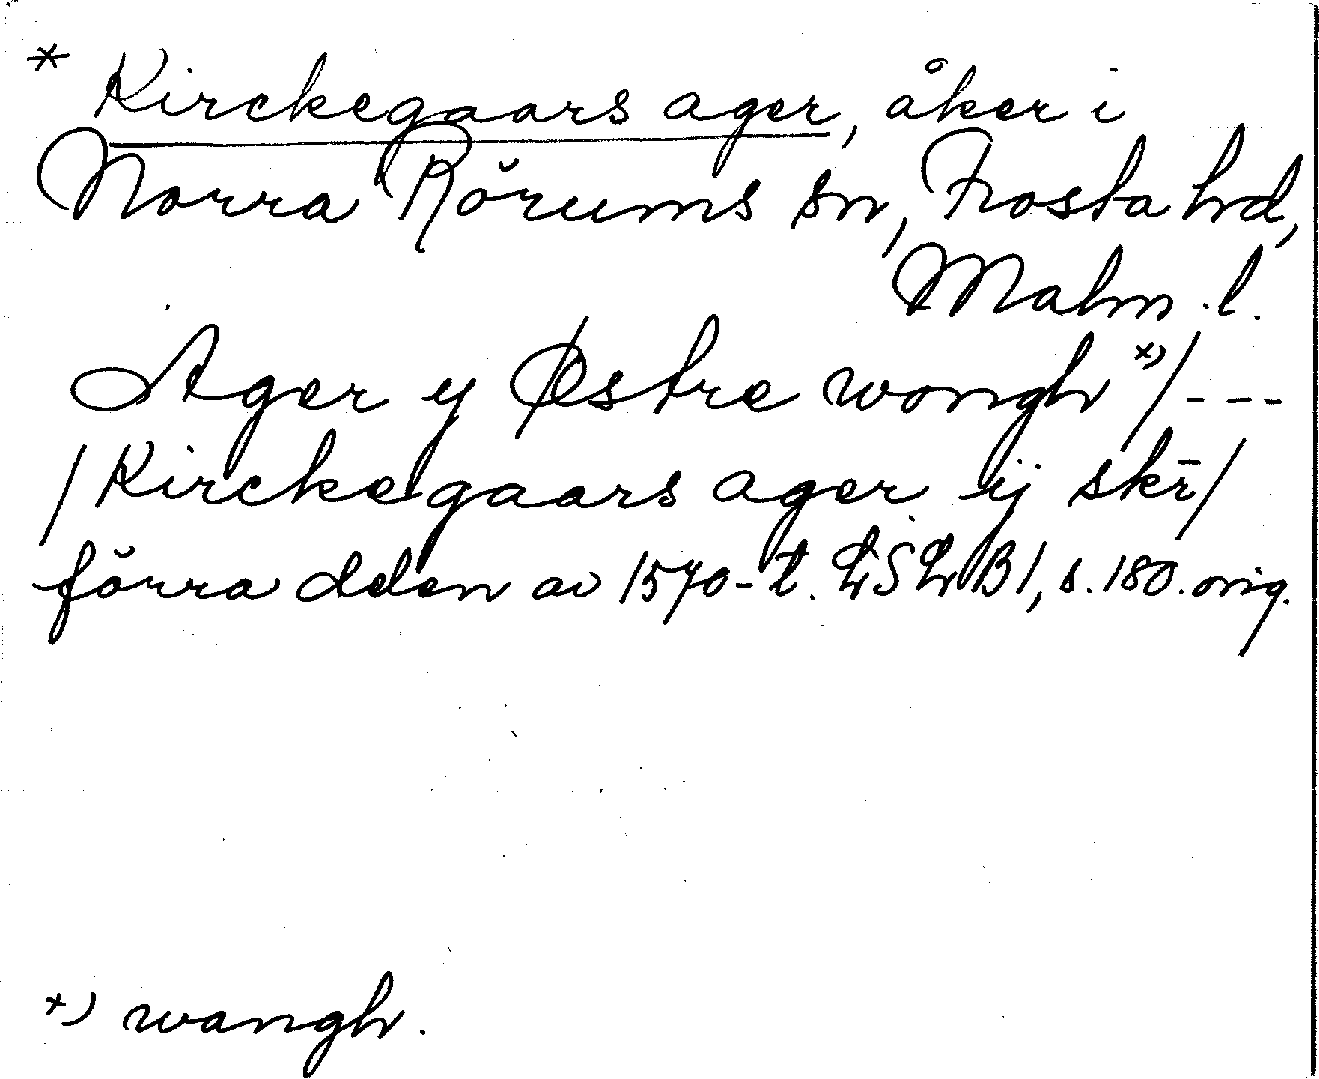 * Kirckegaars ager, åker i
Norra Rörums sn, Frosta hd,
Malm. l.
Ager y Østre wongh *)/---
/Kirckegaars ager ij skr̄/
förra delen av 1570-t. LSLB1, s. 180. orig.
*) wangh.